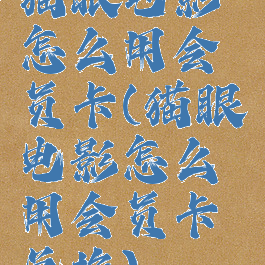 猫眼电影
怎么用会
员卡(猫眼
电影怎么
用会员卡
兑换)